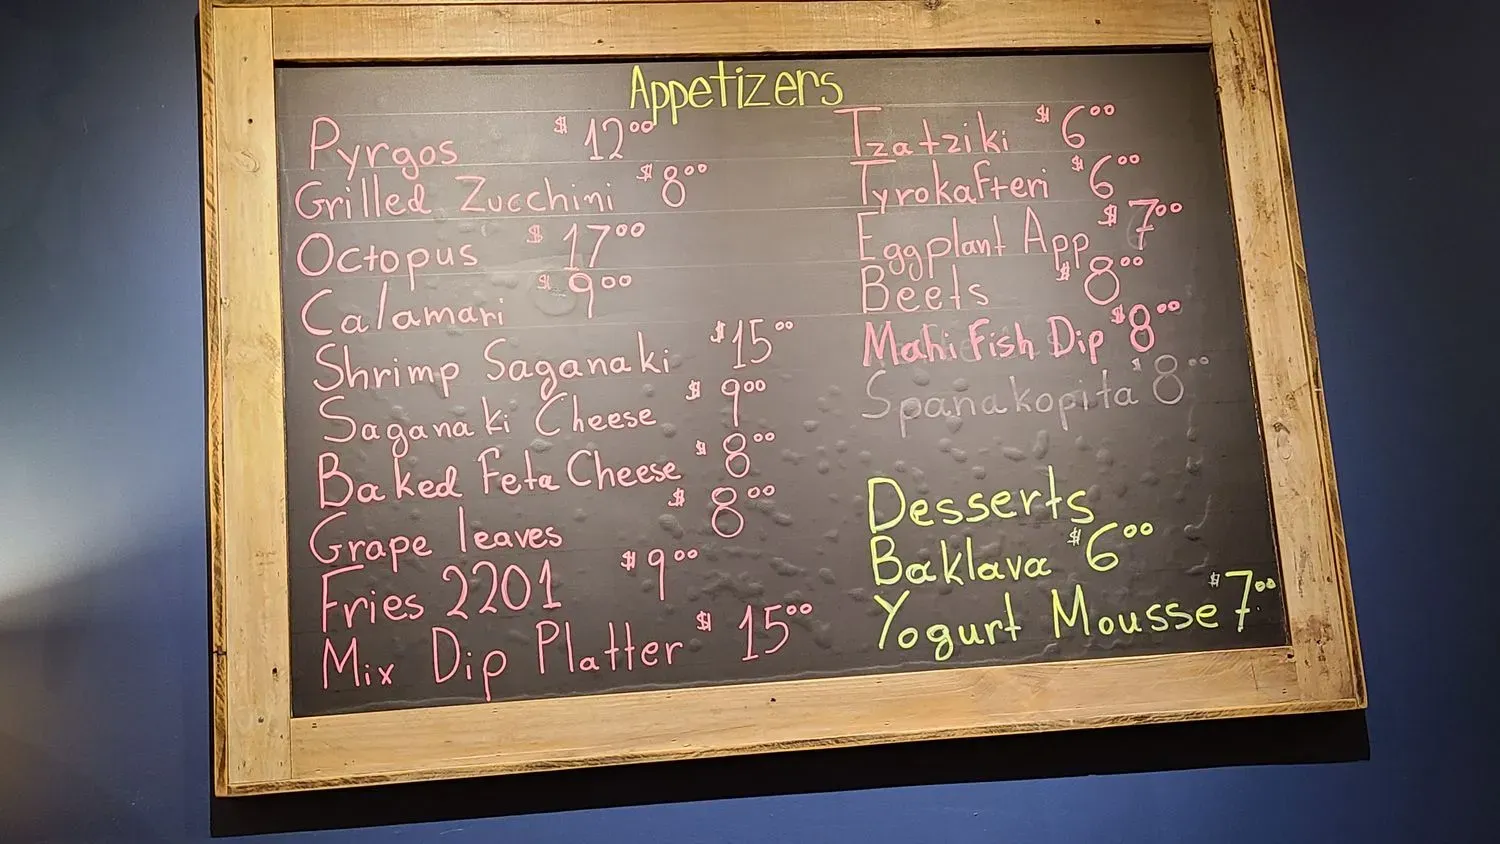 Appetizers
Pyrgos $12.00
Grilled Zucchini $8.00
Octopus $17.00
Calamari $9.00
Shrimp Saganaki $15.00
Saganaki Cheese $9.00
Baked Feta Cheese $8.00
Grape leaves $8.00
Fries 2201 $9.00
Mix Dip Platter $15.00
Tzatziki $6.00
Tyrokafteri $6.00
Eggplant App $7.00
Beets $8.00
Mahi Fish Dip $8.00
Spanakopita $8.00
Desserts
Baklava $6.00
Yogurt Mousse $7.00